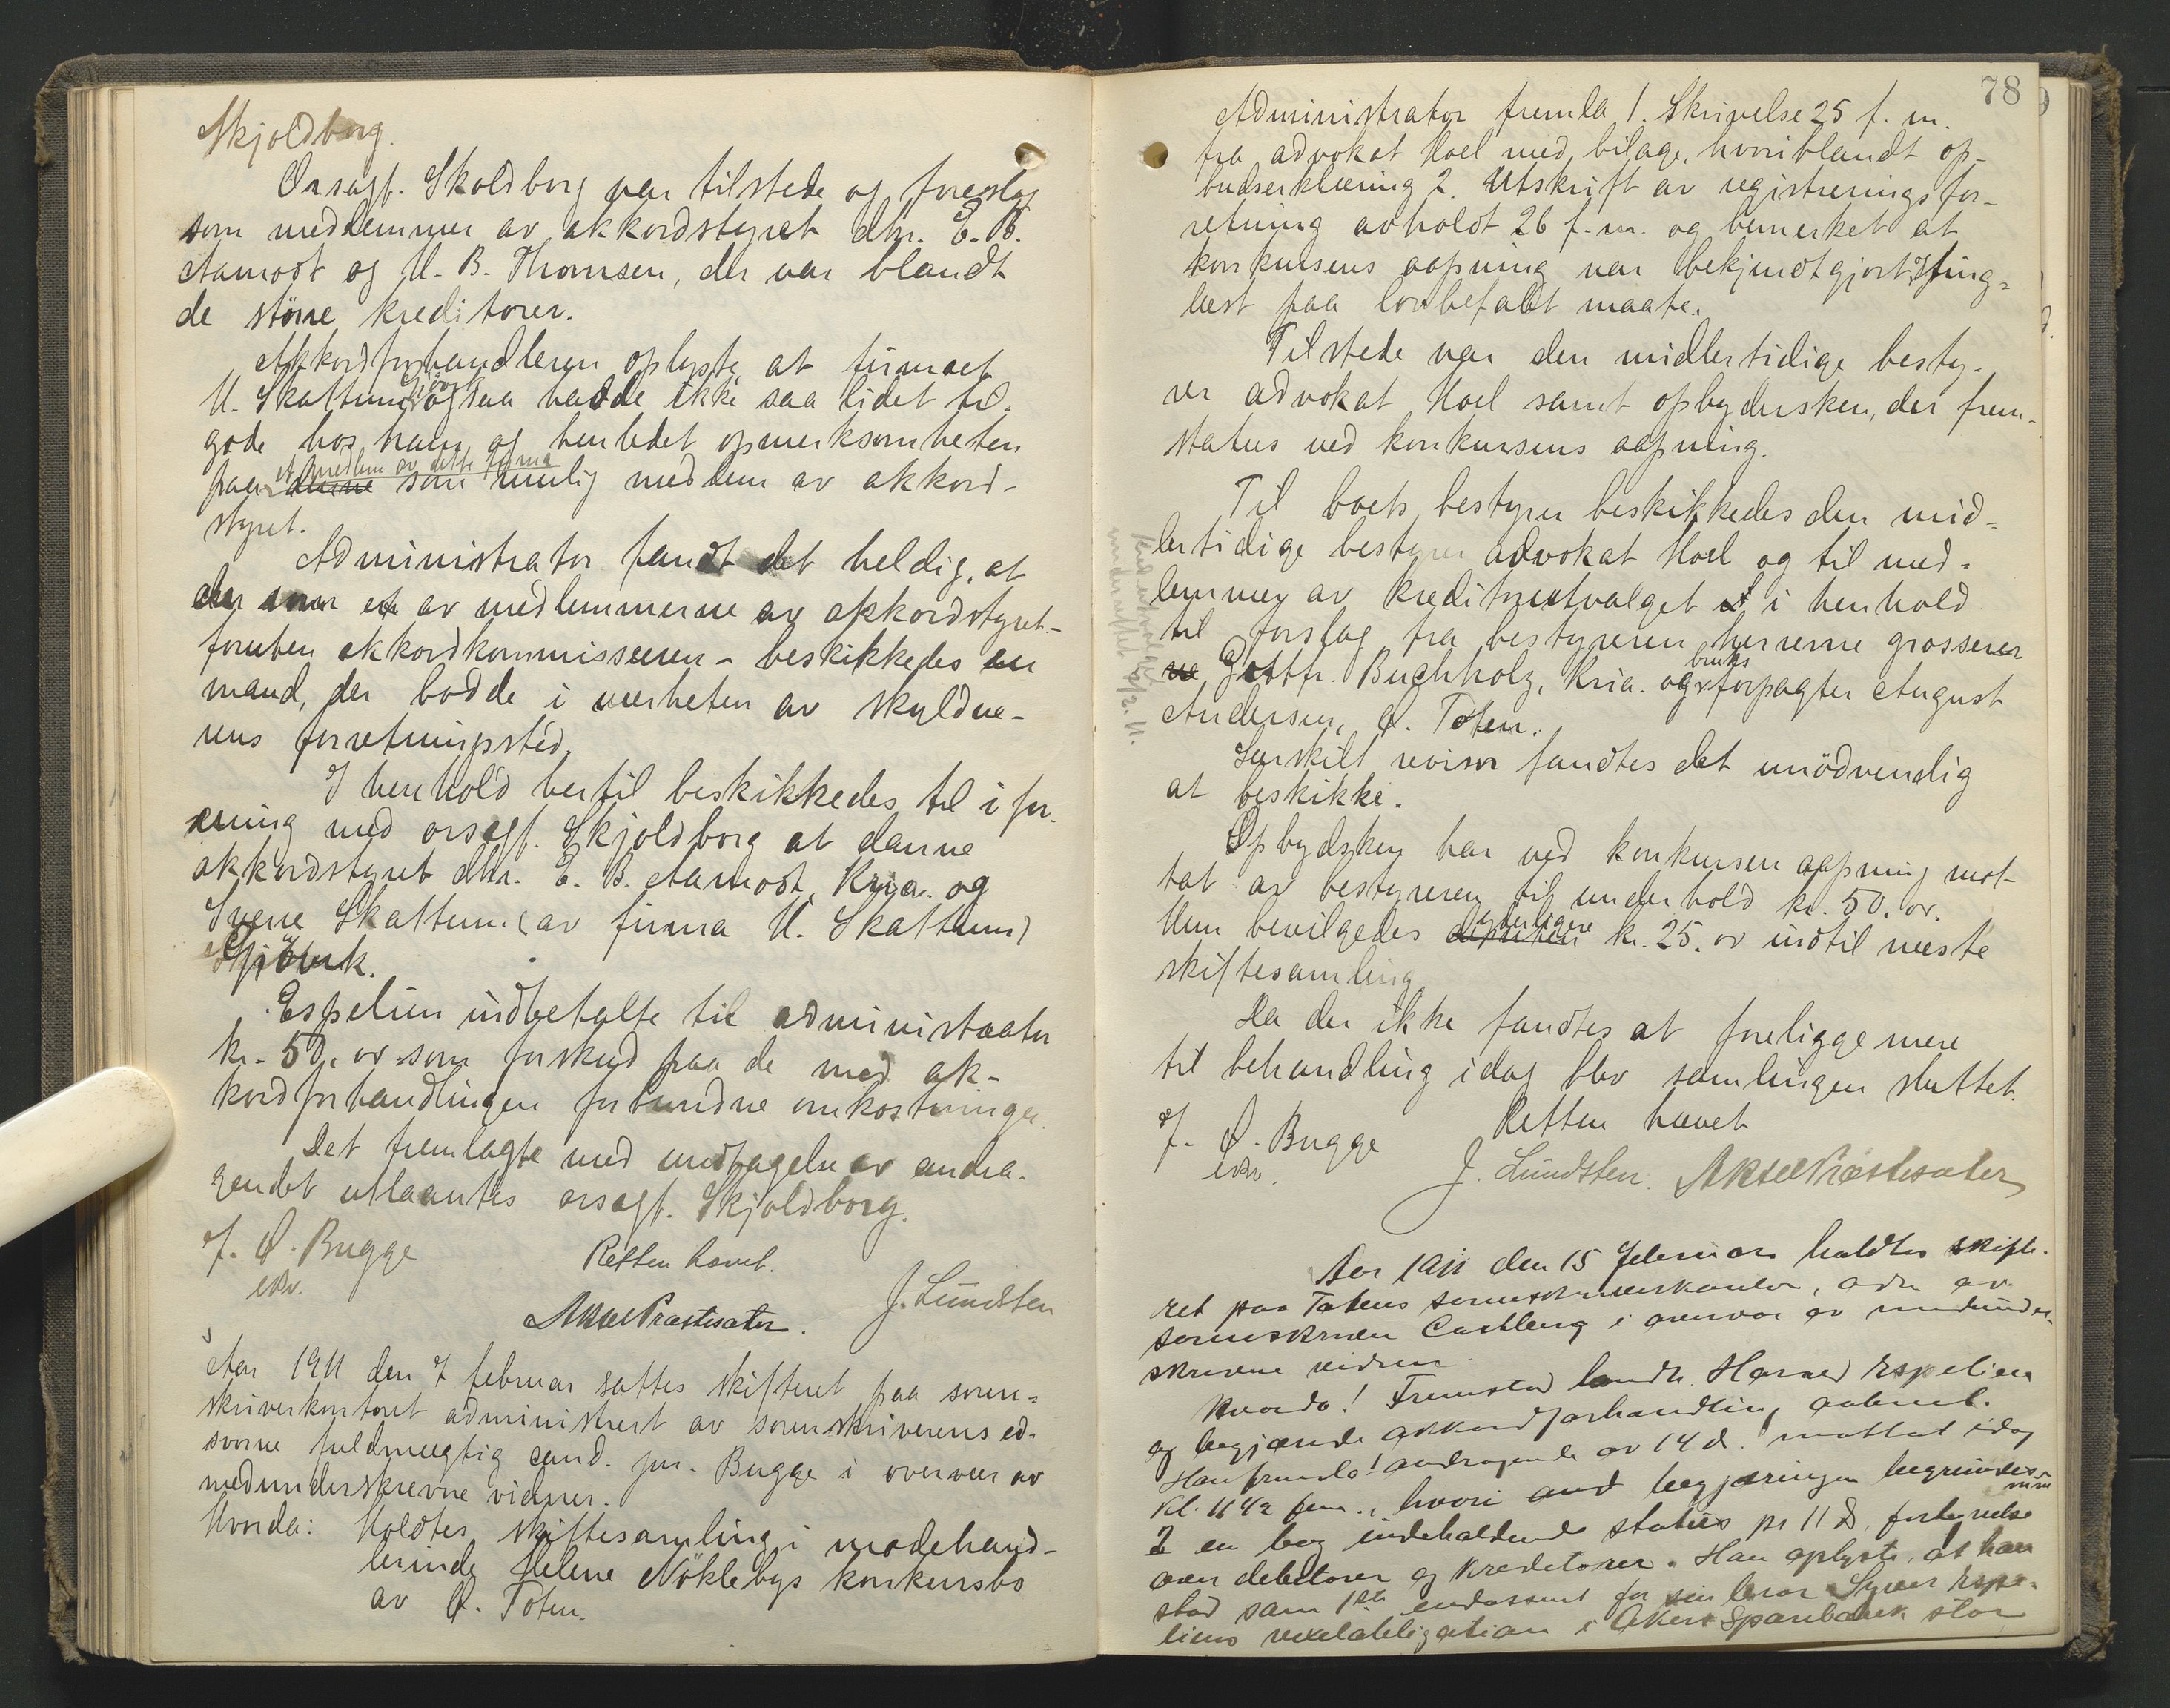 Skjoldborg.
Orsagf. Skoldborg var tilstede og foreslog
som medlemmer av akkordstyret dhr. E. B.
Aamodt og M. B. Thomsen, der var blandt
de större kreditorer.
Akkordforhandleren oplyste at firmaet
M. Skattum Gjövik ogsaa hadde ikke saa lidet til-
gode hos ham og henledet opmerksomheten
paa et medlem av dette firma som mulig medlem av akkord-
styret.
Administrator fandt det heldig, at
der som et av medlemmerne av akkordstyret -
foruten akkordkommissæren - beskikkedes en
mand, der bodde i nærheten av skyldne-
rens forretningssted.
I henhold hertil beskikkedes til i for-
ening med orsagf. Skjoldborg at danne
akkordstyret dhr. E. B. Aamodt, Kria. og
Sverre Skattum (av firma M. Skattum)
Gjövik.
Espelien indbetalte til administrator
kr. 50. or som forskud paa de med ak-
kordforhandlingen forbundne omkostninger.
Det fremlagte med undtagelse av andra-
gendet utlaantes orsagf. Skjoldborg.
f. O. Bugge
edsv.
Retten hævet.
J. Lundsten
Aksel Præstesæter.
Aar 1911 den 7 februar sattes skifteret paa soren-
skriverkontoret administrert av sorenskriverens ed-
svorne fuldmægtig cand. jur. Bugge i overvær av
medunderskrevne vidner.
Hvorda: Holdtes skiftesamling i modehand-
lerinde Helene Nöklebys konkursbo
av Ö. Toten.
78
Administrator fremla 1. Skrivelse 25 f. m.
fra advokat Hoel med bilage, hvoriblandt op-
budserklæring 2. Utskrift av registreringsfor-
retning avholdt 26 f. m. og bemerket at
konkursens aapning var bekjendtgjort og ting-
læst paa lovbefalet maate.
Tilstede var den midlertidige besty-
rer advokat Hoel samt opbydersken, der frem-
status ved konkursens aapning.
Til boets bestyrer beskikkedes den mid-
lertidige bestyrer advokat Hoel og til med-
lemmer av kreditorutvalget i henhold
til forslag fra bestyreren herrerne grosserer
Gottfr. Buchholz, Kria. og bruksforpagter August
Andersen, Ö. Toten.
Særskilt revisor fandtes det unödvendig
at beskikke.
Opbydsken har ved konkursen aapning mot-
tat av bestyreren til underhold kr. 50. or.
Hun bevilgedes yderligere kr. 25. or indtil næste
skiftesamling
Da der ikke fandtes at foreligge mere
til behandling idag blev samlingen sluttet.
Retten hævet
f. O. Bugge
edsv.
J. Lundsten. Aksel Præstesæter
Aar 1911 den 15 februar holdtes skifte-
ret paa Totens sorenskriverkontor, adm av
sorenskriver Castberg i overvær av medunder-
skrevne vidner
Hvorda! Fremstod landh. Harald Espelien
og begjærede akkordforhandling aabnet.
Han fremla 1 andragende av 14 d. mottat idag
Kl. 11 1/2 fm., hvori begjæringen begrundes
2 en bog indeholdende status pr 11 d. fortegnelse
over debitorer og kreditorer. Han oplyste, at han
stod som 1ste endossent for sin bror Syver Espe-
liens vexelobligation i Akers Sparebank stor